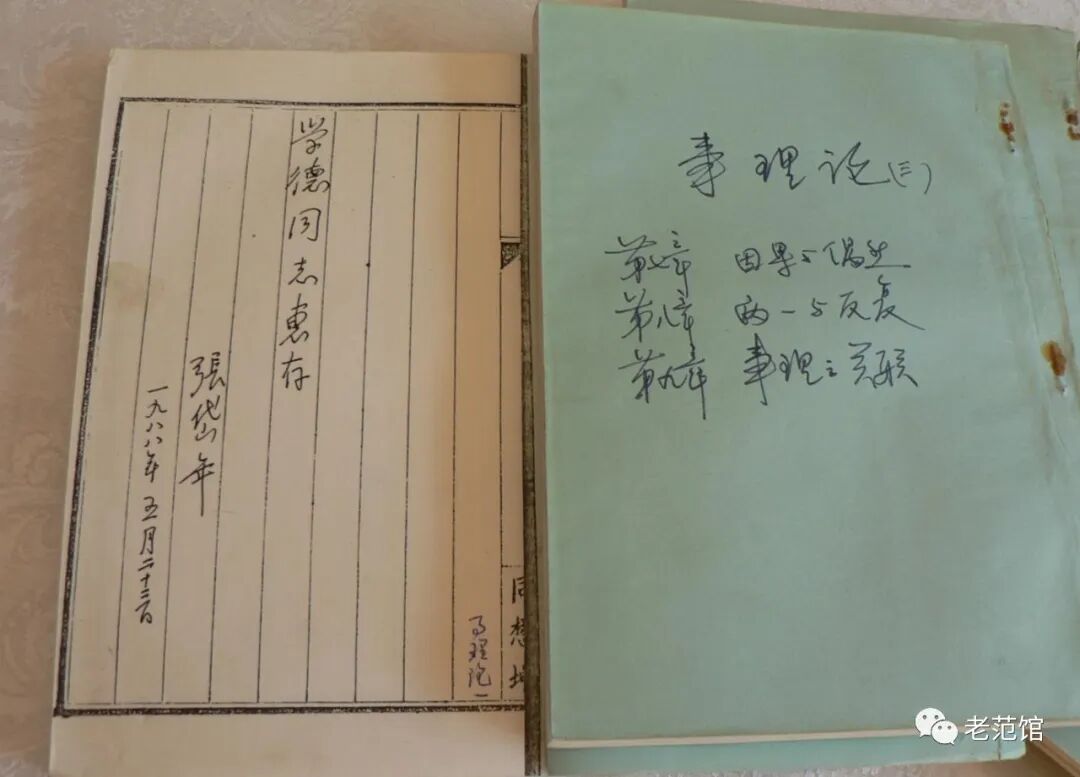 学德同志惠存
張岱年
一九八八年五月二十三日
事理论一
同想
事理论(三)
第七章 因果与偶然
第八章 两一与反复
第九章 事理之关联
老范馆